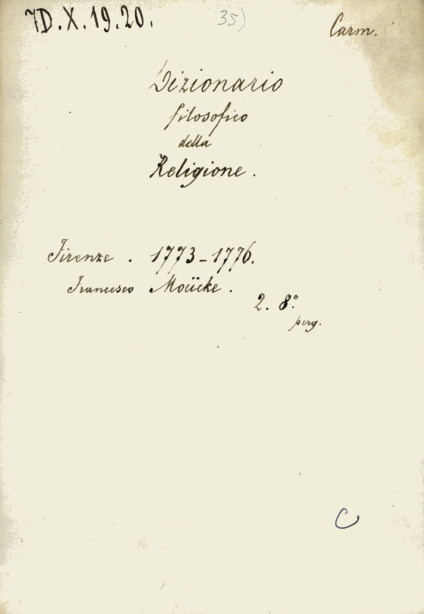 7D.X.19.20. 35) Carm.
Dizionario
filosofico
della
Religione.
Firenze. 1773-1776.
Francesco Moücke.
2. 8°.
perg.
C